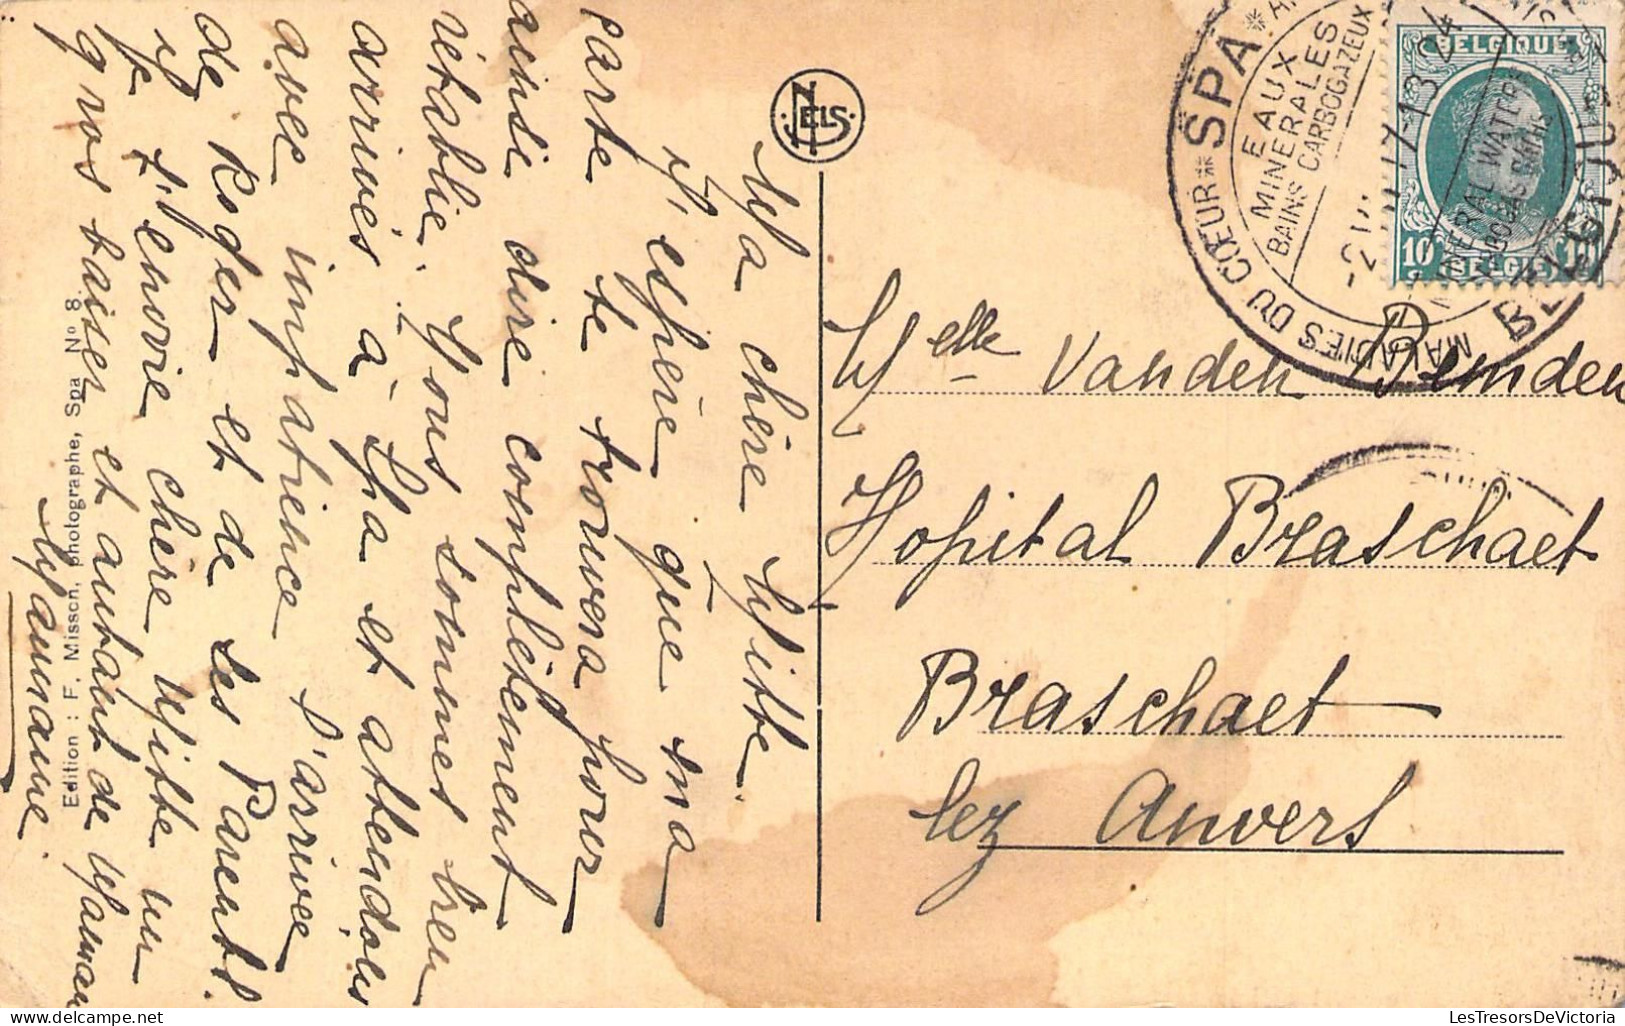 Ma chère Mitte.
J'espère que ma
carte te trouvera pour
ainsi dire complètement
rétablie. Nous sommes bien
arrivés à Spa et attendons
avec impatience l'arrivée
de Roger et de ses Parents.
Je t'envoie chère Mitte un
gros baiser et autant de Maman
Maurane.
Edition : F. Misson, photographe, Spa Nº 8.
NELS
SPA
EAUX
MINERALES
BAINS CARBOGAZEUX
MALADIES DU CŒUR
MINERAL WATER
BELGIQUE
10c
BELGIE
Melle Vanden Bemden
Hopital Braschaet
Braschaet
lez Anvers
LesTresorsDeVictoria